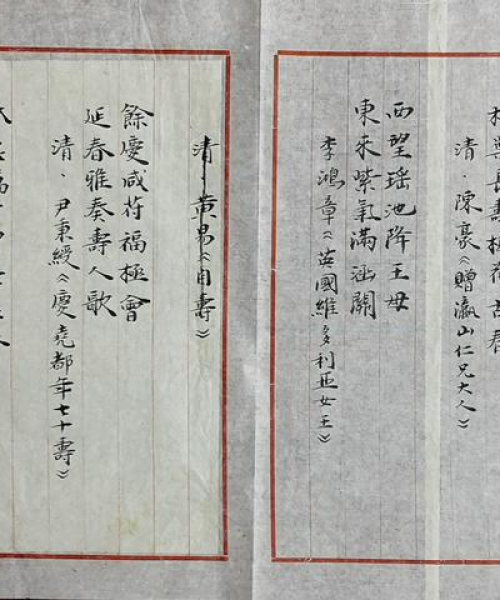 清·陳豪《贈瀛山仁兄大人》
西望瑶池降王母
東来紫氣滿函關
李鴻章《英國維多利亞女王》
清·黄易《自壽》
餘慶咸符福極會
延春雅奏壽人歌
清·尹秉綬《慶堯都年七十壽》